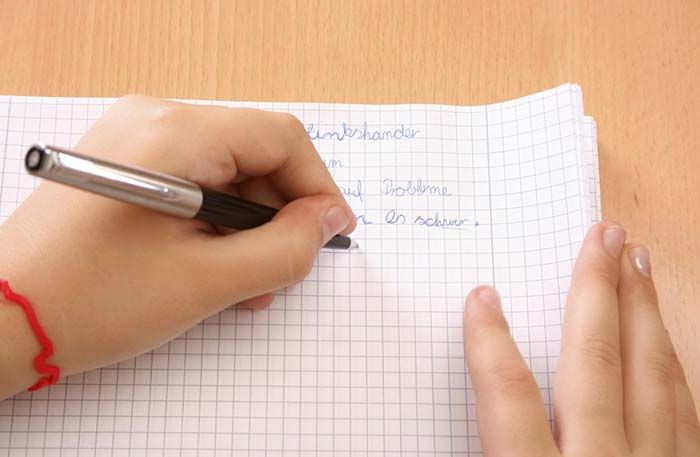 linkshander
auf Probleme
es schwer.